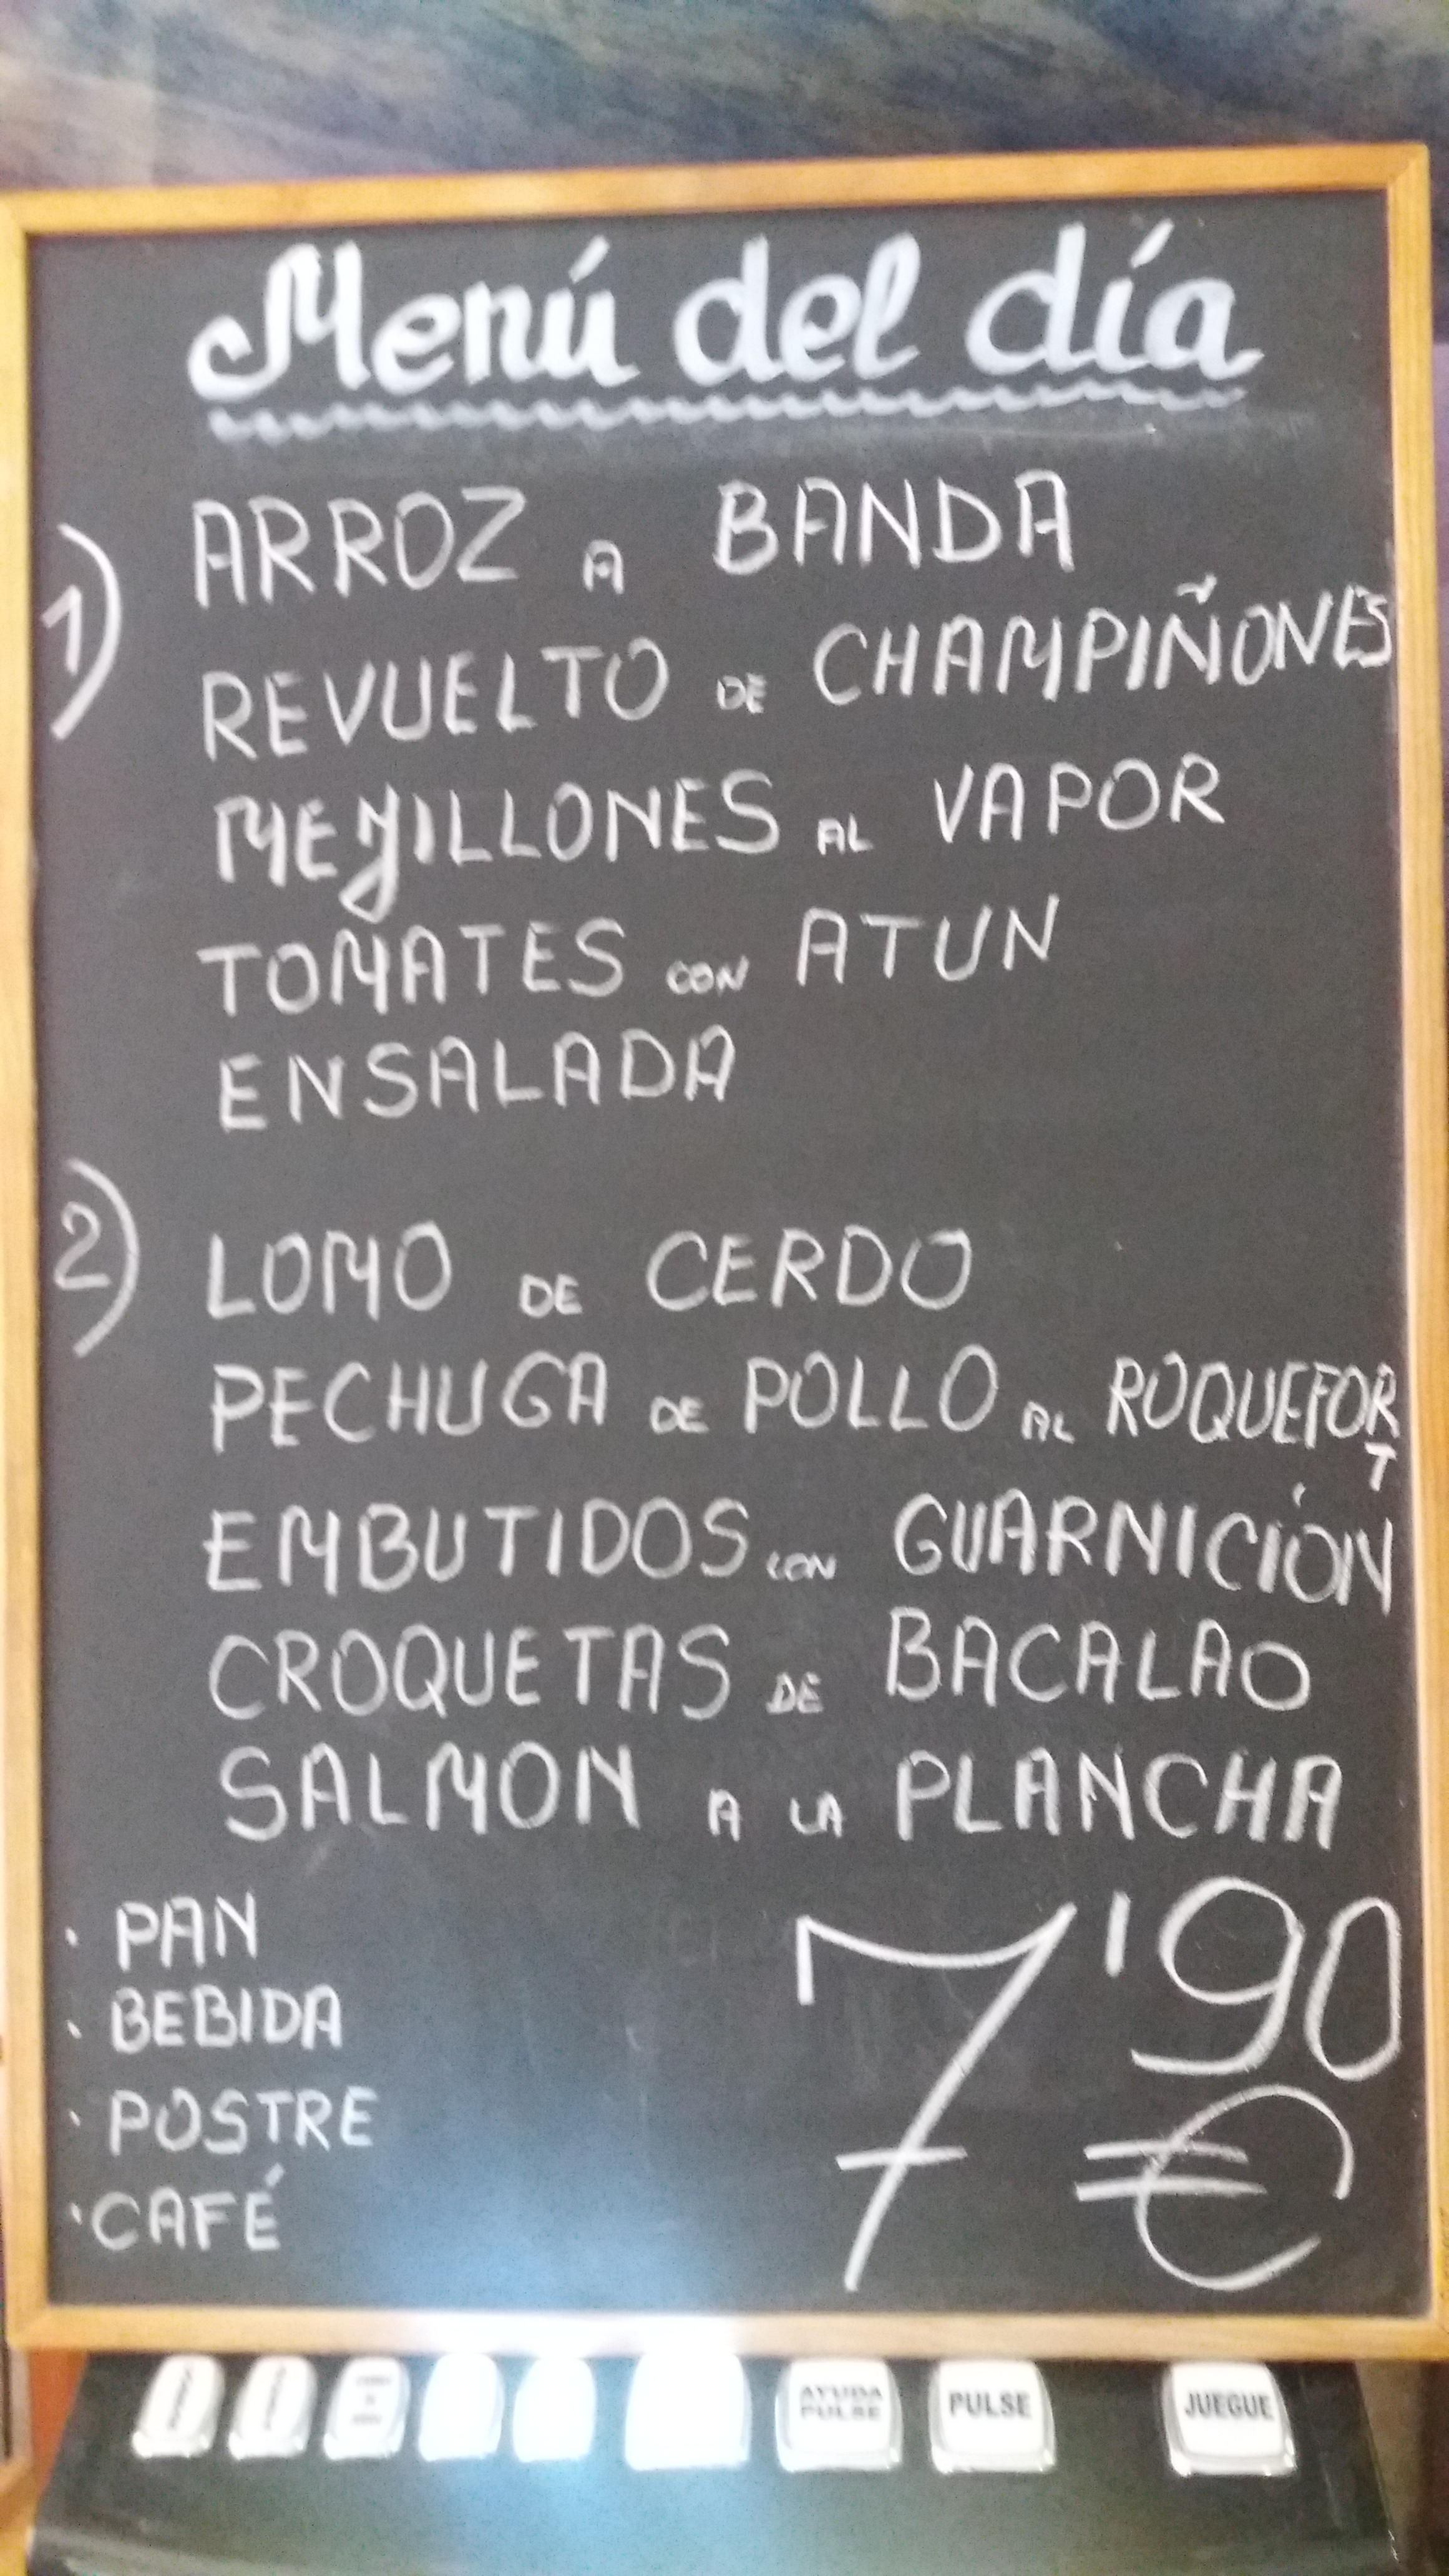 Menú del día
1) ARROZ A BANDA
REVUELTO DE CHAMPIÑONES
MEJILLONES AL VAPOR
TOMATES CON ATUN
ENSALADA
2) LOMO DE CERDO
PECHUGA DE POLLO AL ROQUEFORT
EMBUTIDOS CON GUARNICIÓN
CROQUETAS DE BACALAO
SALMON A LA PLANCHA
· PAN
· BEBIDA
· POSTRE
· CAFÉ
7'90 €
AYUDA PULSE
PULSE
JUEGUE